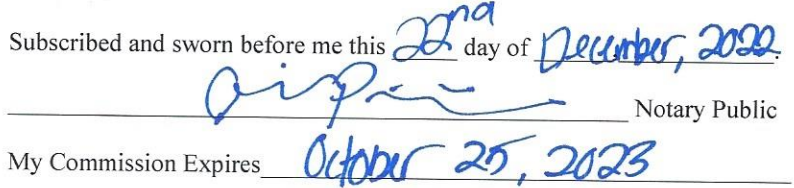 Subscribed and sworn before me this 22nd day of December, 2022.
Notary Public
My Commission Expires October 25, 2023